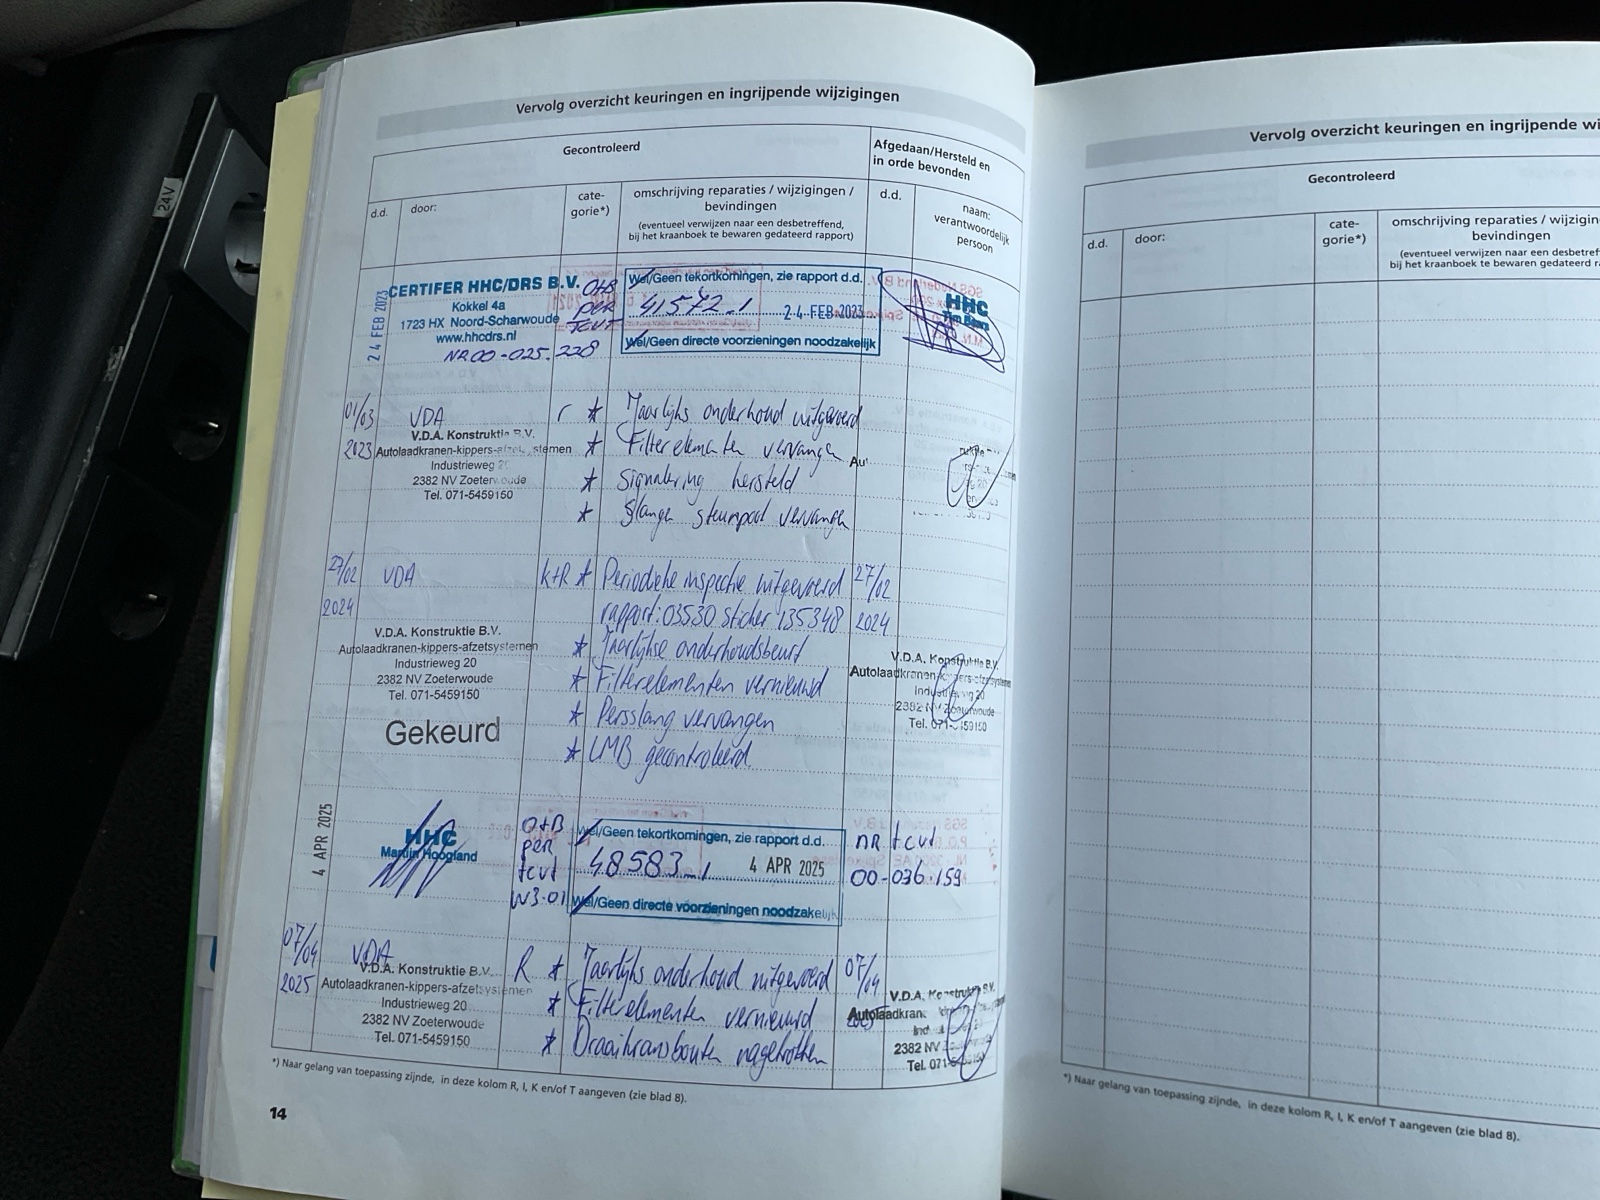 24V
Vervolg overzicht keuringen en ingrijpende wijzigingen
Gecontroleerd
Afgedaan/Hersteld en
in orde bevonden
d.d.
door:
cate-
gorie*)
omschrijving reparaties / wijzigingen /
bevindingen
(eventueel verwijzen naar een desbetreffend,
bij het kraanboek te bewaren gedateerd rapport)
d.d.
naam:
verantwoordelijk
persoon
24 FEB 2023
CERTIFER HHC/DRS B.V.
Kokkel 4a
1723 HX Noord-Scharwoude
www.hhcdrs.nl
NR 00-025.228
O+B
per
tcvt
Wel/Geen tekortkomingen, zie rapport d.d.
41572-1 24 FEB 2023
Wel/Geen directe voorzieningen noodzakelijk
HHC
01/03
2023
VDA
V.D.A. Konstruktie B.V.
Autolaadkranen-kippers-afzetsystemen
Industrieweg
2382 NV Zoeterwoude
Tel. 071-5459150
r * Jaarlijks onderhoud uitgevoerd
* Filterelementen vervangen
* Signalering hersteld
* Slangen steunpoot vervangen
27/02
2024
VDA
V.D.A. Konstruktie B.V.
Autolaadkranen-kippers-afzetsystemen
Industrieweg 20
2382 NV Zoeterwoude
Tel. 071-5459150
Gekeurd
K+R * Periodieke inspectie uitgevoerd
rapport: 03530 sticker 135348
* Jaarlijkse onderhoudsbeurt
* Filterelementen vernieuwd
* Persslang vervangen
* LMB gecontroleerd
27/02
2024
V.D.A. Konstruktie B.V.
Autolaadkranen-kippers-afzetsystemen
Industrieweg 20
2382 NV Zoeterwoude
Tel. 071-5459150
4 APR 2025
HHC
Martijn Hoogland
O+B
per
tcvt
W3-01
Wel/Geen tekortkomingen, zie rapport d.d.
48583-1 4 APR 2025
Wel/Geen directe voorzieningen noodzakelijk
nr tcvt
00-036.159
07/04
2025
VDA
V.D.A. Konstruktie B.V.
Autolaadkranen-kippers-afzetsystemen
Industrieweg 20
2382 NV Zoeterwoude
Tel. 071-5459150
R * Jaarlijks onderhoud uitgevoerd
* Filterelementen vernieuwd
* Draaikransbouten nagetrokken
07/04
2025
V.D.A. Konstruktie B.V.
Autolaadkran
2382 NV
Tel. 071-5459150
*) Naar gelang van toepassing zijnde, in deze kolom R, I, K en/of T aangeven (zie blad 8).
14
Vervolg overzicht keuringen en ingrijpende wi
Gecontroleerd
d.d.
door:
cate-
gorie*)
omschrijving reparaties / wijzigin
bevindingen
(eventueel verwijzen naar een desbetreff
bij het kraanboek te bewaren gedateerd r
*) Naar gelang van toepassing zijnde, in deze kolom R, I, K en/of T aangeven (zie blad 8).